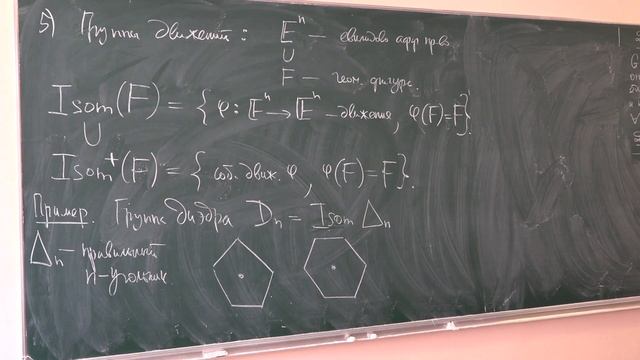 5) Группы движений: 𝔼ⁿ — евклидово афф. пр-во
∪
F — геом. фигура.
Isom(F) = {φ: 𝔼ⁿ → 𝔼ⁿ — движения, φ(F)=F}
∪
Isom⁺(F) = {соб. движ. φ, φ(F)=F}.
Пример. Группа диэдра Dₙ = Isom Δₙ
Δₙ — правильный
n-угольник